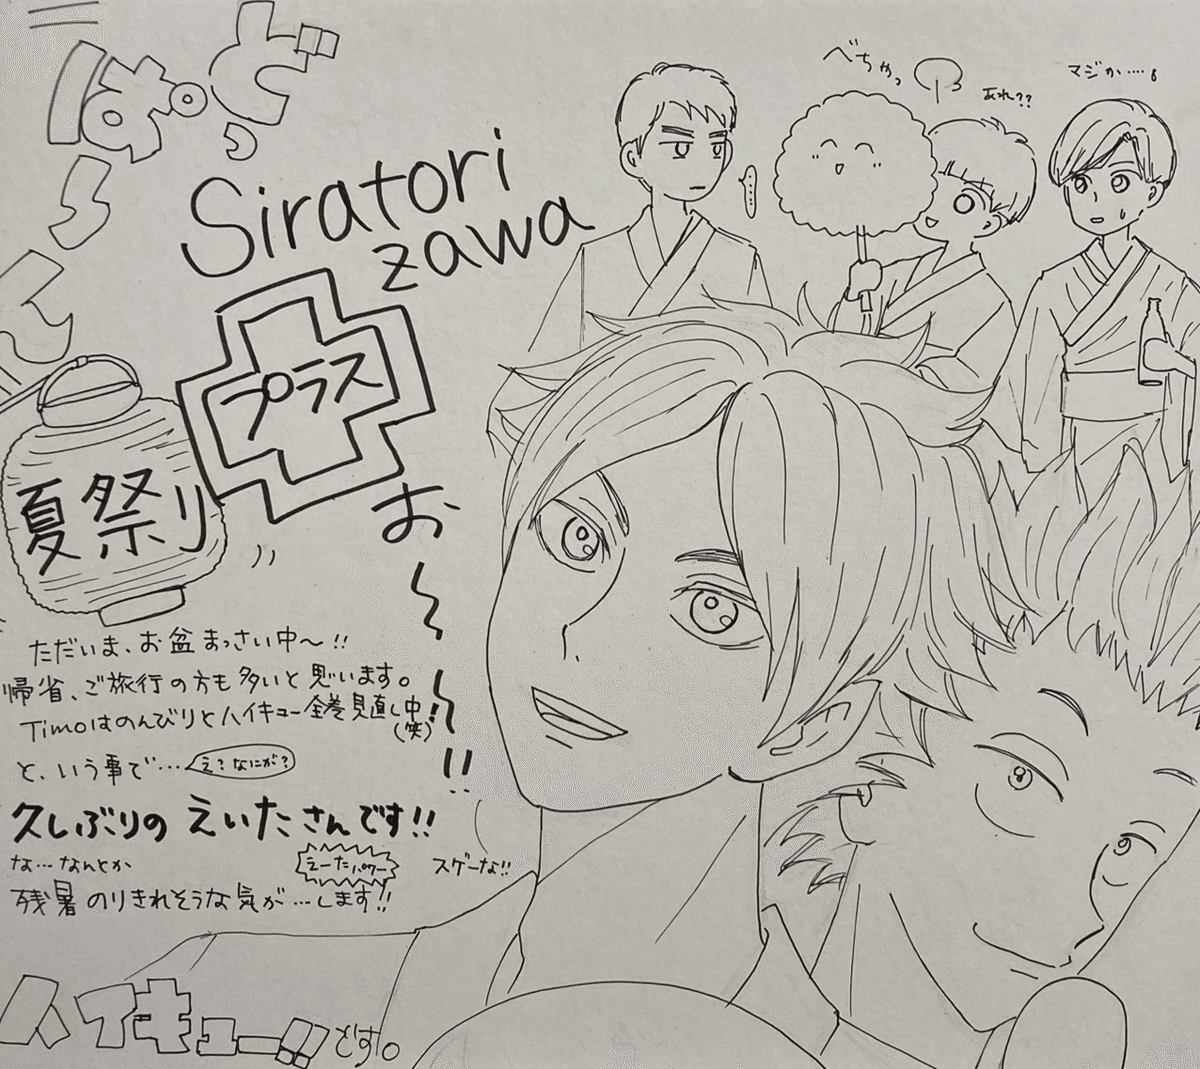 Siratori
zawa
プラス
お〜〜!!
夏祭り
べちゃっ
あれ??
マジか……。
ただいま、お盆まっさい中〜!!
帰省、ご旅行の方も多いと思います。
Timoはのんびりとハイキュー全巻見直し中!!
(笑)
と、いう事で…… え?なにが?
久しぶりの えいたさんです!!
な…なんとか えーたパワー スゲーな!!
残暑のりきれそうな気が…します!!
ハイキュー!!です。